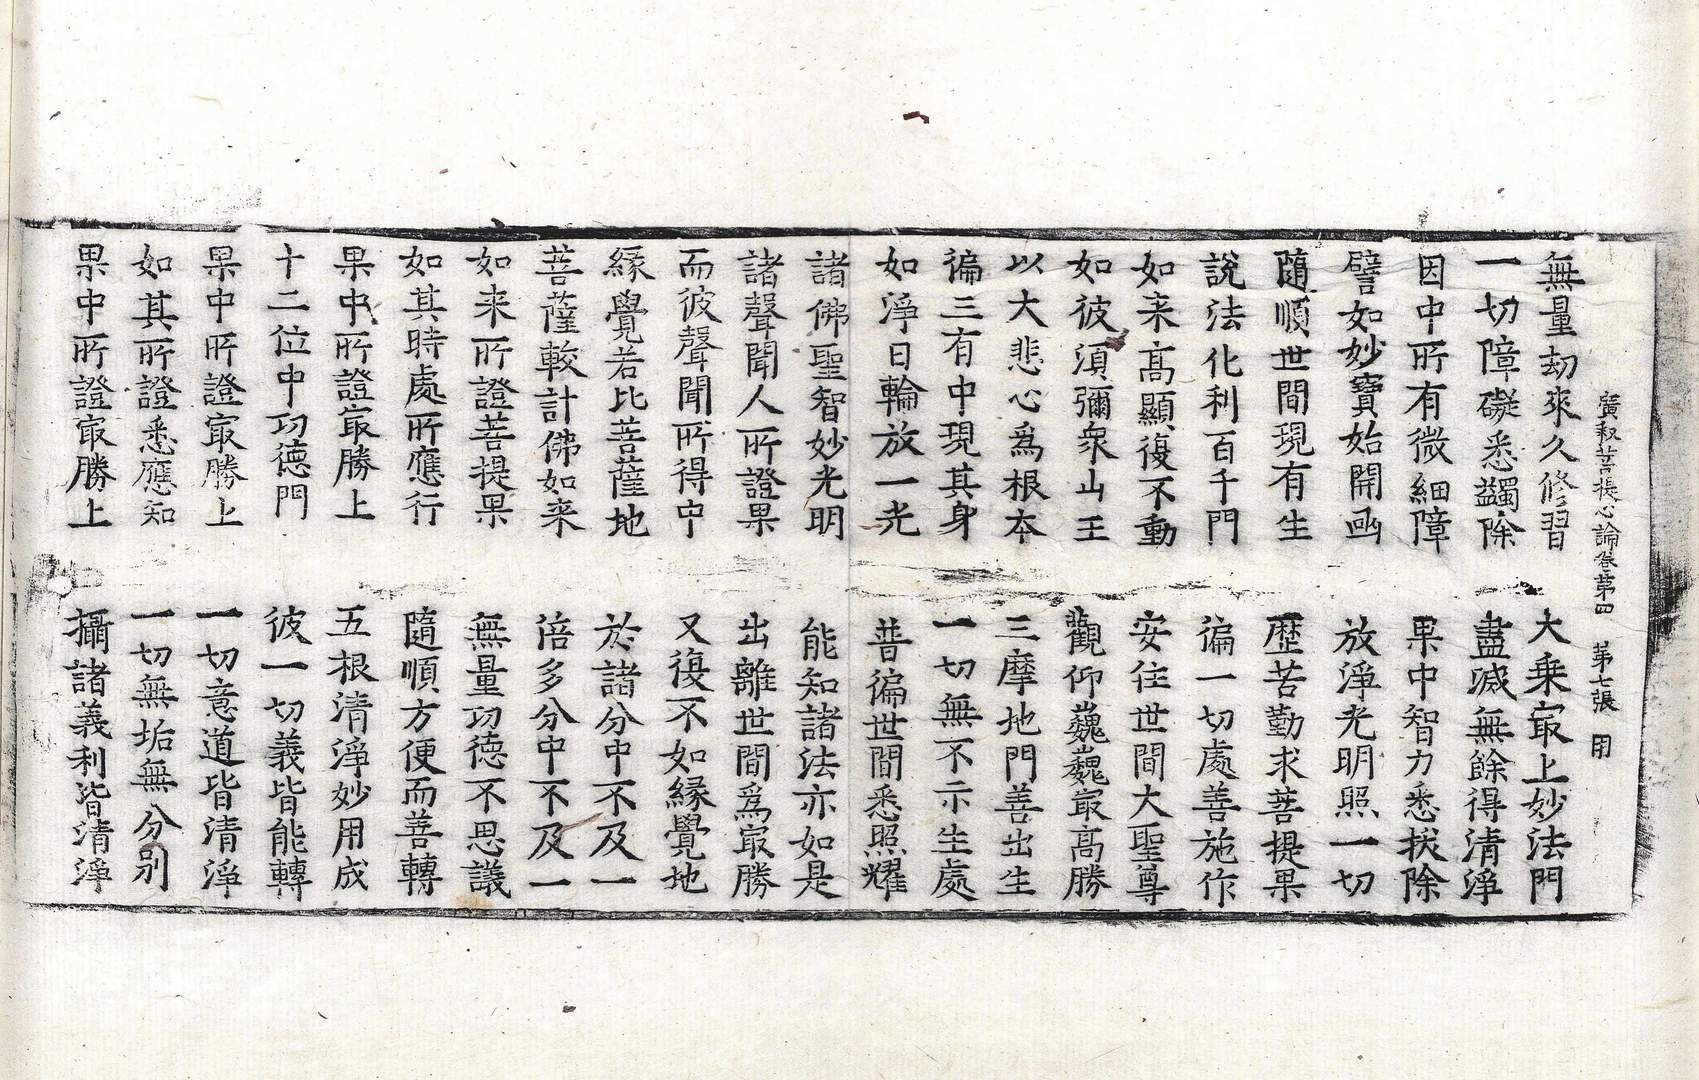 廣釈菩提心論卷第四　第七張　用
無量劫來久修習　大乗㝡上妙法門
一切障礙悉蠲除　盡滅無餘得清淨
因中所有微細障　果中智力悉拔除
譬如妙寶始開函　放淨光明照一切
隨順世間現有生　歷苦勤求菩提果
說法化利百千門　徧一切處善施作
如来高顯復不動　安住世間大聖尊
如彼須彌衆山王　觀仰巍巍㝡高勝
以大悲心爲根本　三摩地門善出生
徧三有中現其身　一切無不示生處
如淨日輪放一光　普徧世間悉照耀
諸佛聖智妙光明　能知諸法亦如是
諸聲聞人所證果　出離世間爲㝡勝
而彼聲聞所得中　又復不如緣覺地
緣覺若比菩薩地　於諸分中不及一
菩薩較計佛如来　倍多分中不及一
如来所證菩提果　無量功德不思議
如其時處所應行　隨順方便而善轉
果中所證㝡勝上　五根清淨妙用成
十二位中功德門　彼一切義皆能轉
果中所證㝡勝上　一切意道皆清淨
如其所證悉應知　一切無垢無分別
果中所證㝡勝上　攝諸義利皆清淨